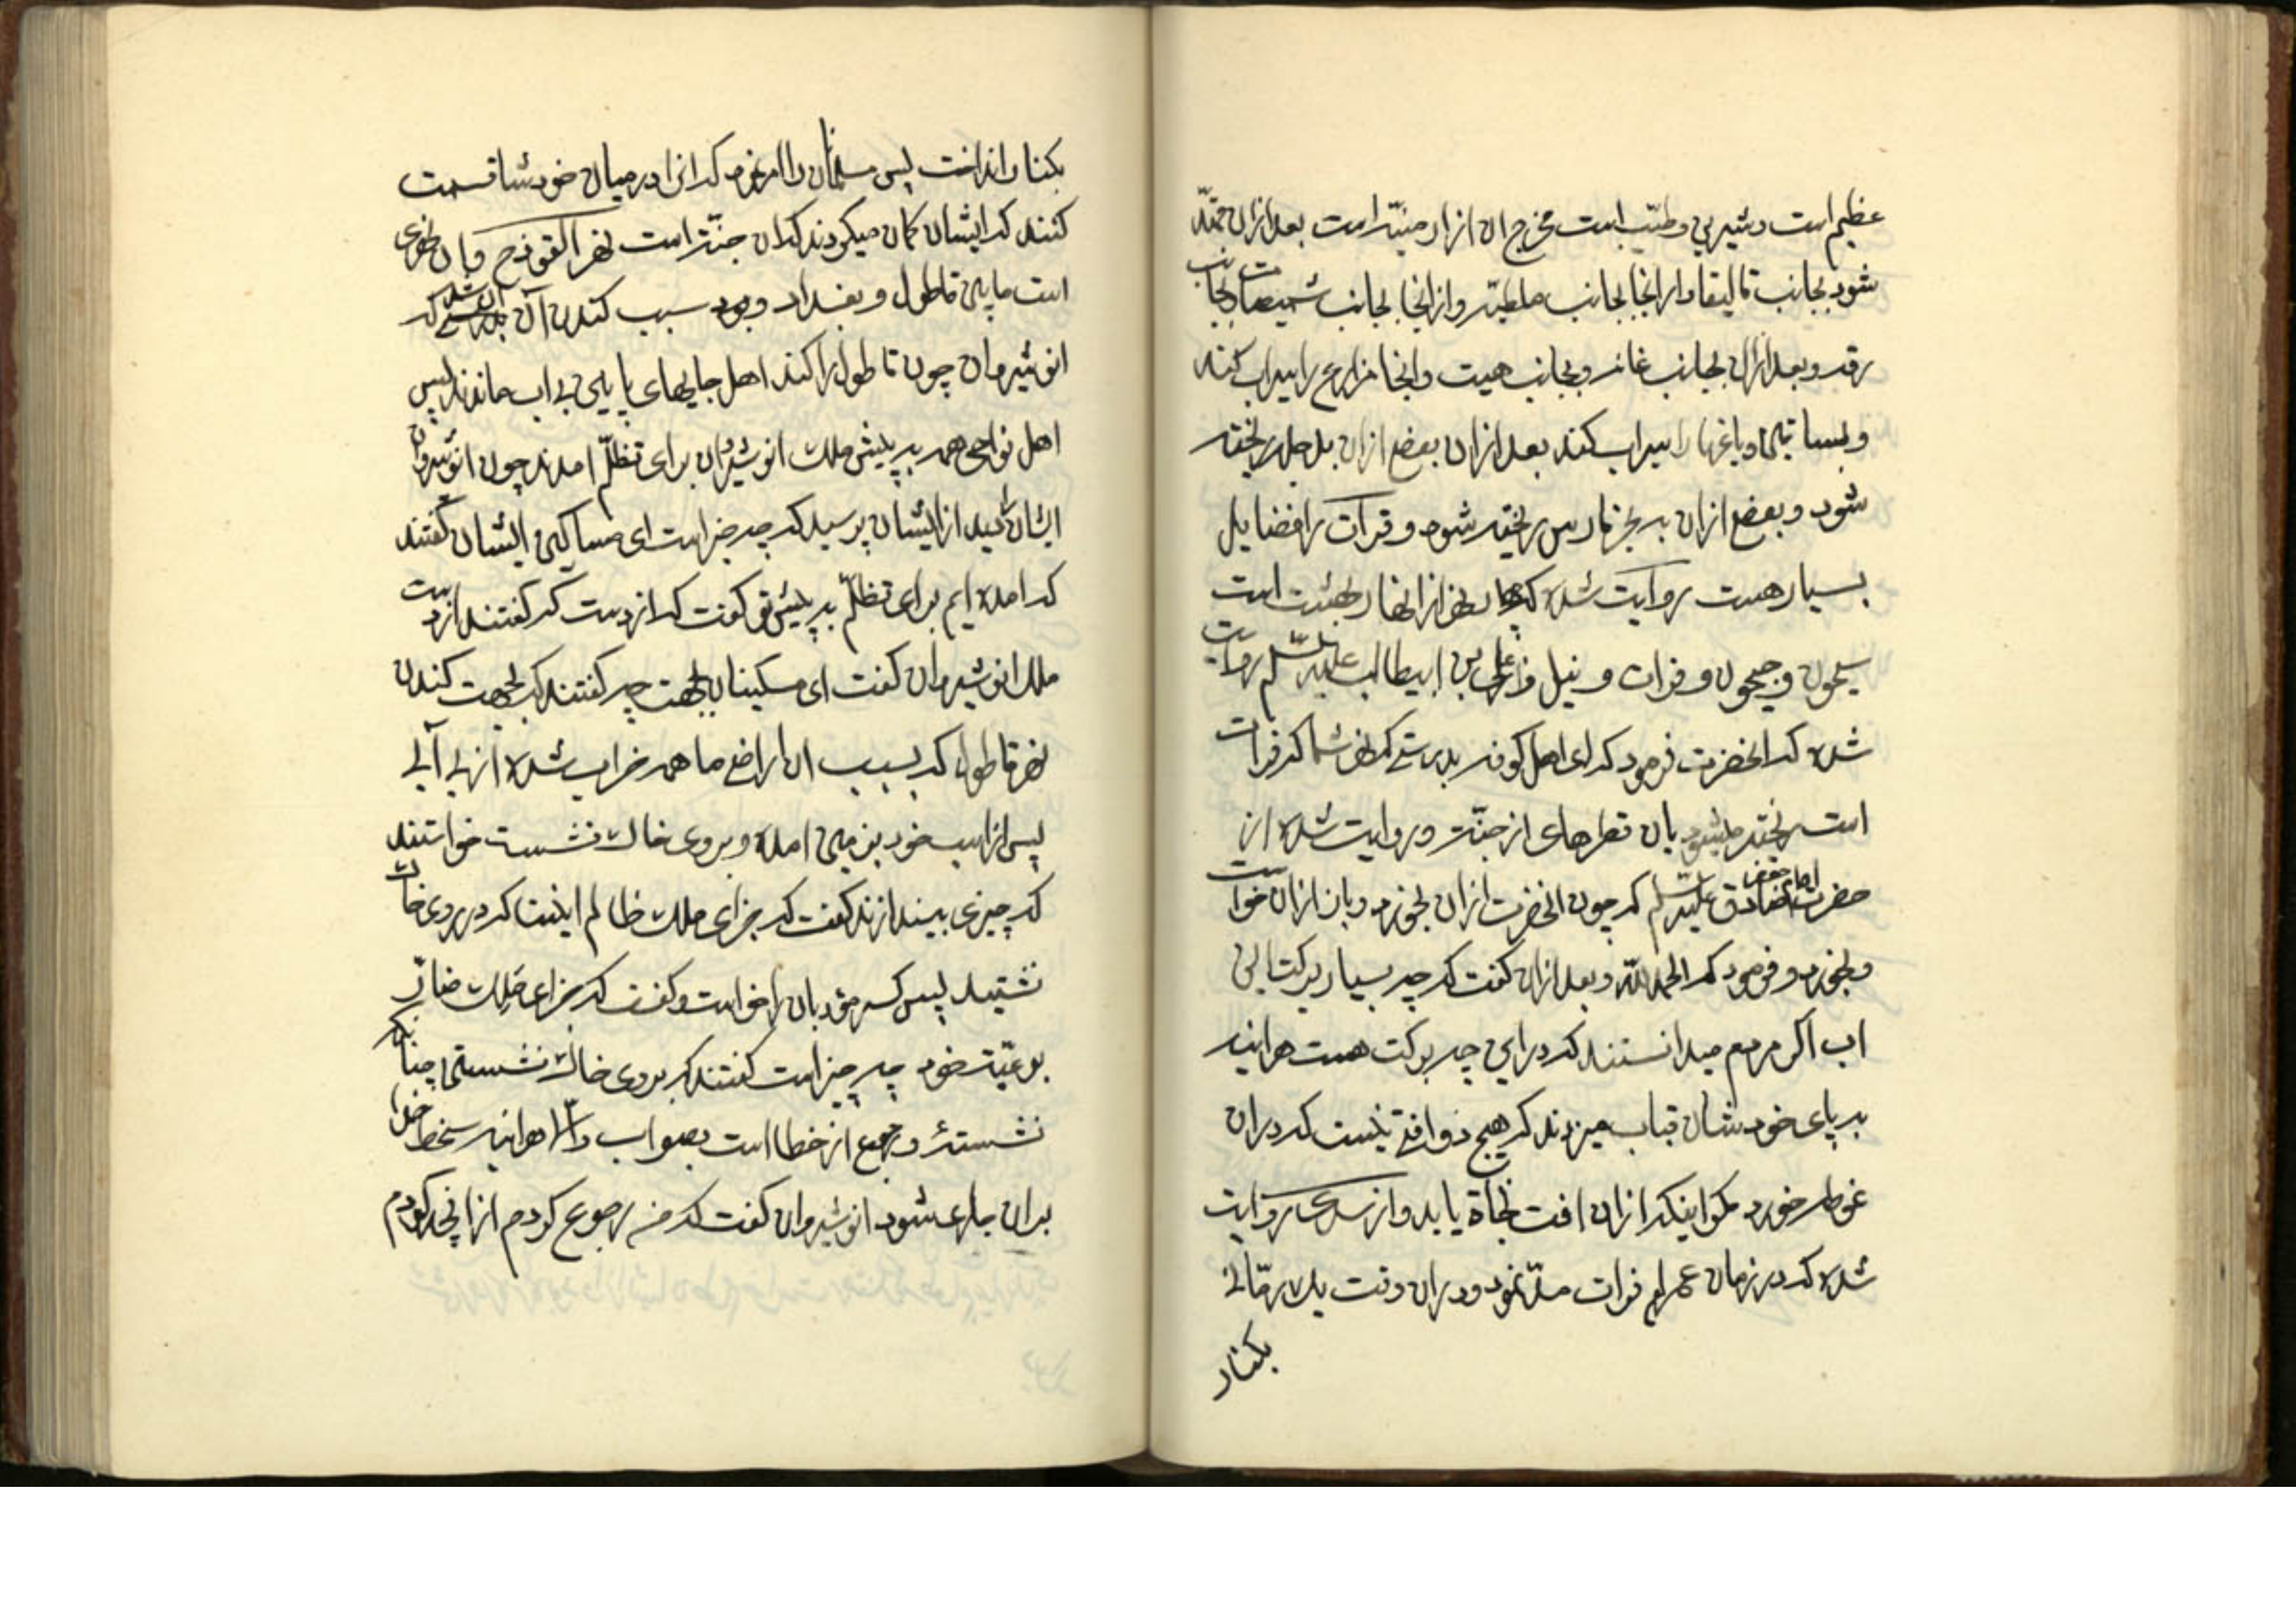 عظیم است و شیرین و طیّب است مخرج ان از ارمنیّه است بعد ازان ممتدّ
شود بجانب قالیقلا و از انجا بجانب ملطیّه و از انجا بجانب شمیصات بجانب
رقه و بعد ازان بجانب غانه و بجانب هیت و انجا مزارع را سیراب کند
و بساتین و باغها را سیراب کند بعد ازان بعضی ازان بدجله ریخته
شود و بعضی ازان به بحر فارس ریخته شود و فرات را فضایل
بسیار هست روایت شده که چهار نهر از انهار بهشت است
سیحون و جیحون و فرات و نیل و از علی بن ابیطالب علیه السّلم روایت
شده که انحضرت فرمود که ای اهل کوفه بدرستی که نهر شما که فرات
است ریخته میشود بان قطرهای از جنّت و روایت شده از
حضرت امام جعفر صادق علیه السّلم که چون انحضرت ازان بخورد و باز ازان خواست
و بخورد و فرمود که الحمد لله و بعد ازان گفت که چه بسیار برکت این
اب اگر مردم میدانستند که در این چه برکت هست هراینه
به پای خودشان قباب میزدند که هیچ ذو افتی نیست که دران
غوطه خورد مگر اینکه ازان افت نجاة یابد و از سدی روایت
شده که در زمان عمر اب فرات مدّ نمود و دران وقت یک رمّانی
بکنار
بکنار انداخت پس مسلمانان را امر نمود که انرا در میان خودشا قسمت
کنند که ایشان گمان میکردند که ان جنّت است نهر القورج و ان نهری
است مابین قاطول و بغداد و بود سبب کندن آن ان شد که
انوشیروان چون قاطول را کند اهل جایهای پایین بی اب ماندند پس
اهل نواحی همه به پیش ملک انوشیروان برای تظلّم امدند چون انوشیروان
ایشان را دید از ایشان پرسید که چه خبر است ای مساکین ایشان گفتند
که امده ایم برای تظلّم به پیش تو گفت که از دست که گفتند از دست
ملک انوشیروان گفت ای مسکینان بجهت چه گفتند که بجهت کندن
نهر قاطول که بسبب ان اراضی ما همه خراب شده از بی آبی
پس از اسب خود بزمین امده و بروی خاک نشست خواستند
که چیزی بیندازند گفت که جزای ملک ظالم اینست که در روی خاک
نشیند پس کس مؤبدان را خواست و گفت که جزای ملک ضارّ
برعیّت خود چه چیز است گفتند که بروی خاک نشستن چنانکه
نشستهٔ و رجوع از خطا است بصواب و الّا هراینه سخط خدا
بران جاری شود انوشیروان گفت که من رجوع کردم از انچه کردم